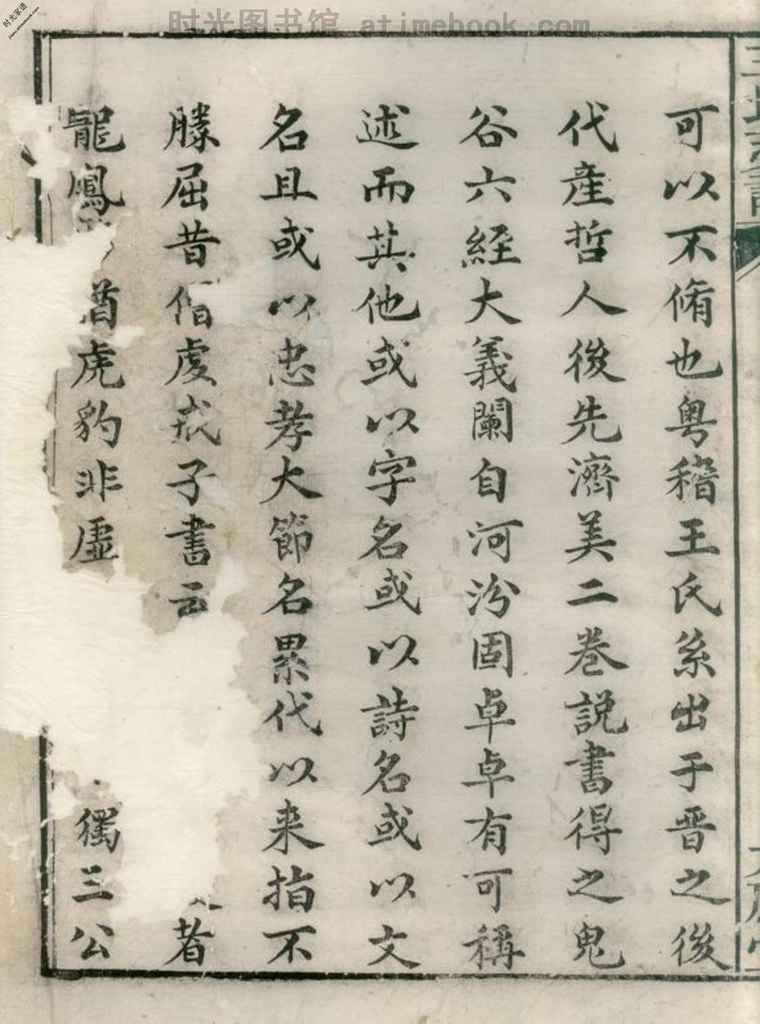 时光图书馆 atimebook.com
可以不脩也粤稽王氏系出于晋之後
代產哲人後先濟美二巻説書得之鬼
谷六經大義闡自河汾固卓卓有可稱
述而其他或以字名或以詩名或以文
名且或以忠孝大節名累代以来指不
滕屈昔僧虔戒子書云 者
龍鳳 猶虎豹非虚 獨三公